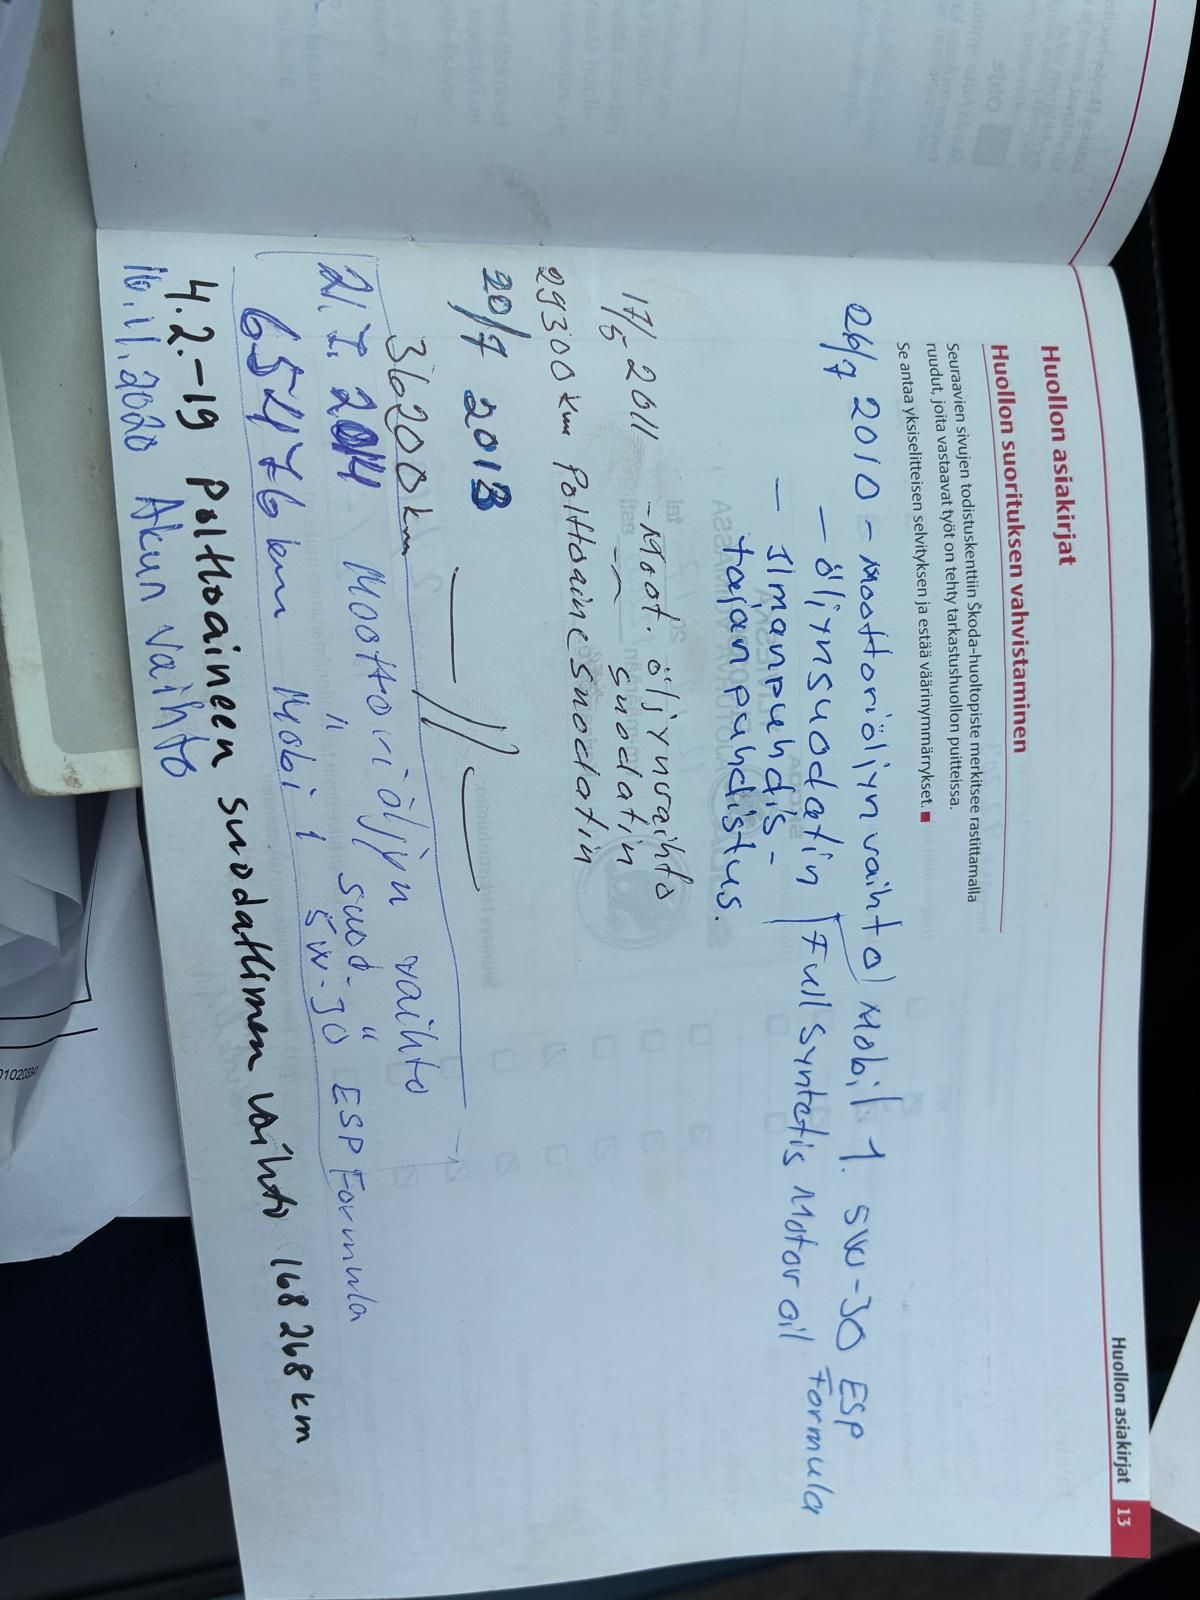 Huollon asiakirjat 13
Huollon asiakirjat
Huollon suorituksen vahvistaminen
Seuraavien sivujen todistuskenttiin Škoda-huoltopiste merkitsee rastittamalla
ruudut, joita vastaavat työt on tehty tarkastushuollon puitteissa.
Se antaa yksiselitteisen selvityksen ja estää väärinymmärrykset.
26/7 2010 - moottoriöljynvaihto) Mobil 1. 5W-30 ESP Formula
- öljynsuodatin Full Syntetis Motor oil
- ilmanpuhdis-
tajan puhdistus.
17/5-2011 - Moot. öljynvaihto
-"- suodatin
29300 km Polttoainesuodatin
20/7 2013 —//—
36200 km
21.7.2014 Moottoriöljyn vaihto
" suod- "
65476 km Mobi 1 5W-30 ESP Formula
4.2.-19 polttoaineen suodattimen vaihto 168 268 km
16.11.2020 Akun vaihto
010203341